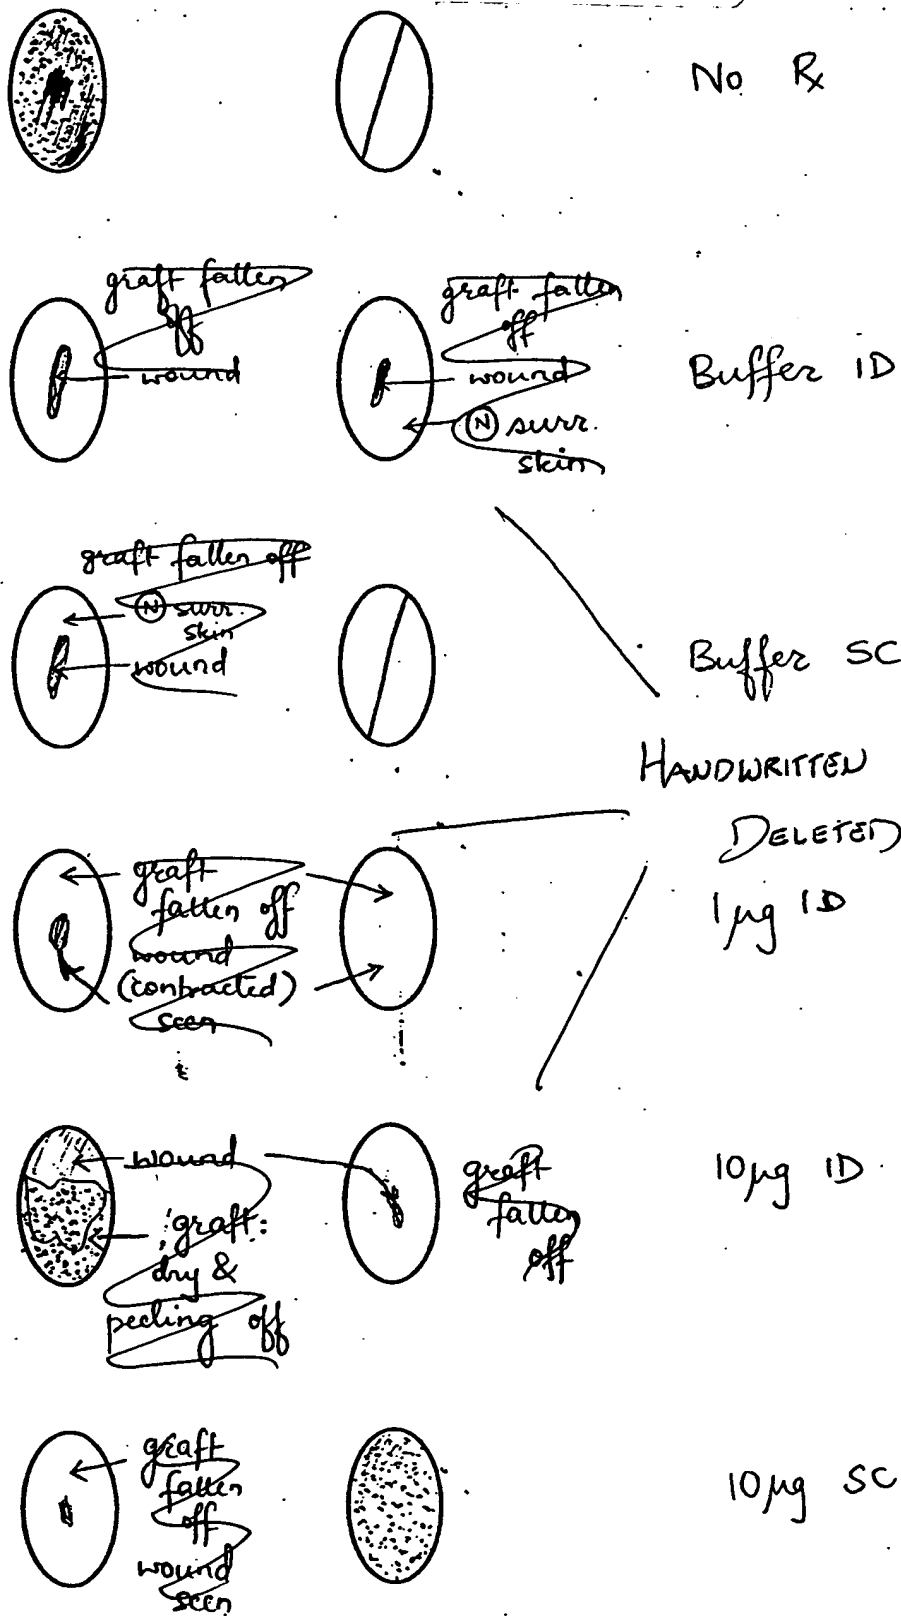 No Rx
graft fallen
off
wound
graft fallen
off
wound
N surr.
skin
Buffer ID
graft fallen off
N surr.
skin
wound
Buffer SC
HANDWRITTEN
DELETED
graft
fallen off
wound
(contracted)
seen
1 µg ID
wound
graft:
dry &
peeling off
graft
fallen
off
10µg ID
graft
fallen
off
wound
seen
10µg SC